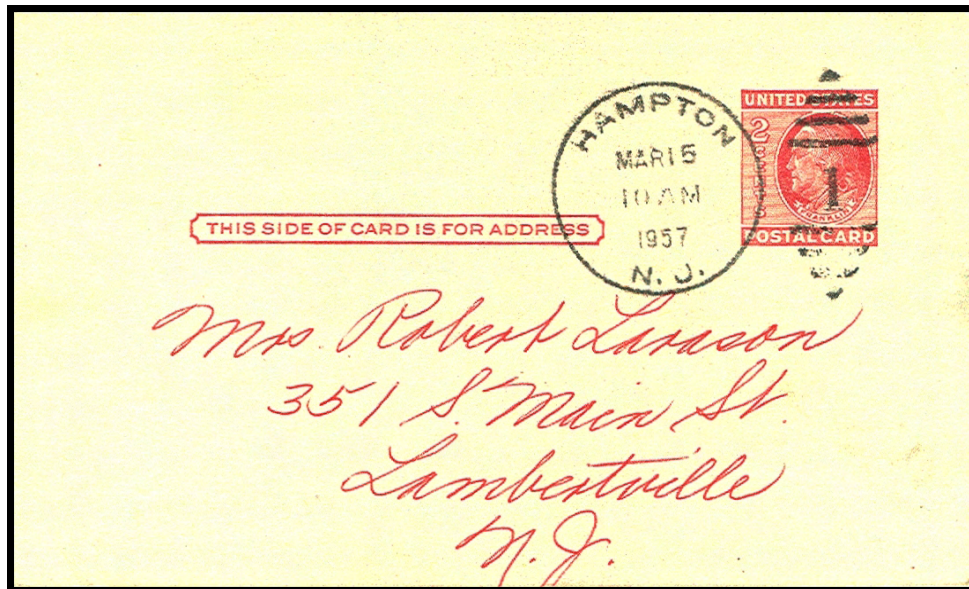 HAMPTON
MAR 15
10 AM
1957
N. J.
UNITED STATES
2
FRANKLIN
POSTAL CARD
1
THIS SIDE OF CARD IS FOR ADDRESS
Mrs. Robert Larason
351 S. Main St.
Lambertville
N. J.